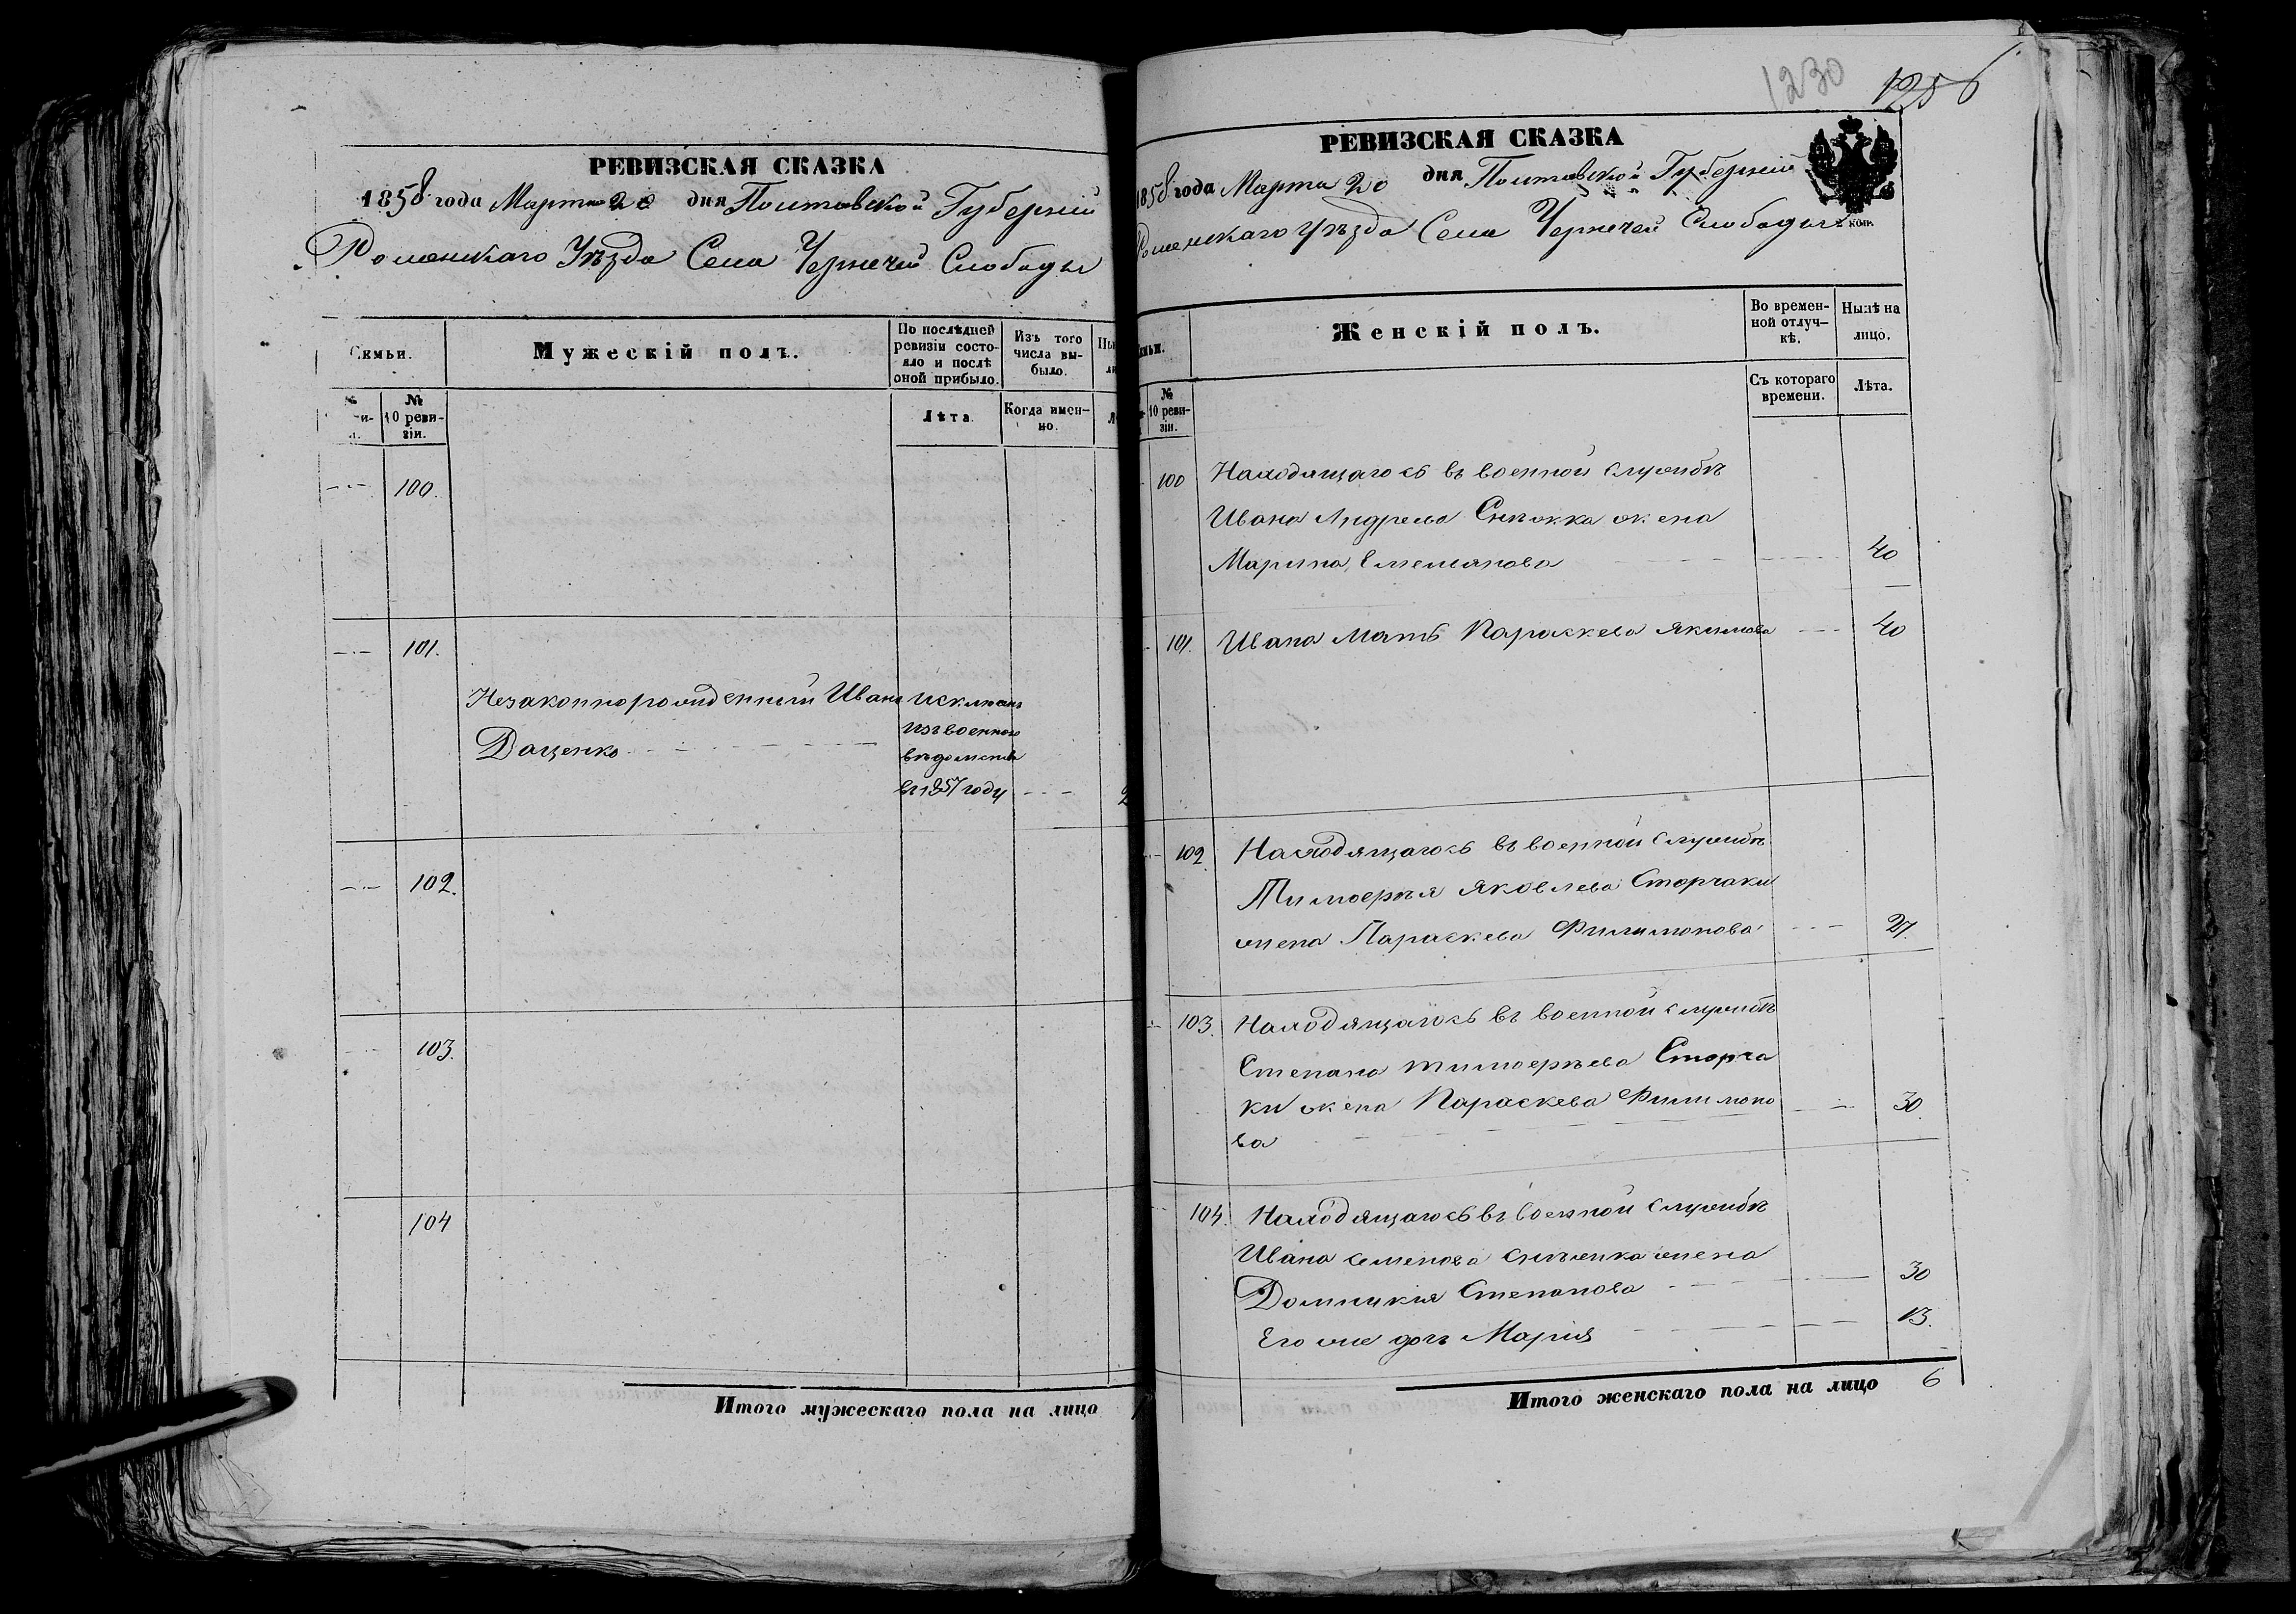 РЕВИЗСКАЯ СКАЗКА
1858 года Марта 20 дня Полтавской Губернии
Роменскаго Уѣзда Села Чернечей Слободы
Семьи.
Мужескій полъ.
По послѣдней ревизіи состояло и послѣ оной прибыло.
Изъ того числа выбыло.
№ 10 ревизіи.
Лѣта
Когда именно.
100.
101.
Незаконнорожденный Иванъ
Даценко
Исключенъ
изъ военнаго
вѣдомства
въ 1857 году
102.
103.
104
Итого мужескаго пола на лицо
1230 1256
РЕВИЗСКАЯ СКАЗКА
1858 года Марта 20 дня Полтавской Губернии
Роменскаго Уѣзда Села Чернечей Слободы
Женскій полъ.
Во временной отлучкѣ.
Нынѣ на лицо.
№ 10 ревизіи.
Съ котораго времени.
Лѣта.
100 Находящагось въ военной службѣ
Ивана Андреева Снѣжка жена
Марина Емельянова 40
101. Ивана Мать Параскева Якимова 40
102 Находящагось въ военной службѣ
Тимоѳѣя Яковлева Сторчаки
жена Параскева Филимонова 27.
103. Находящагось въ военной службѣ
Степана Тимоѳѣева Сторча
ки жена Параскева Филимоно 30
ва
104. Находящагось въ военной службѣ
Ивана Семенова Снѣжка жена
Домникія Степанова 30
Его же дочь Марія 13.
Итого женскаго пола на лицо 6